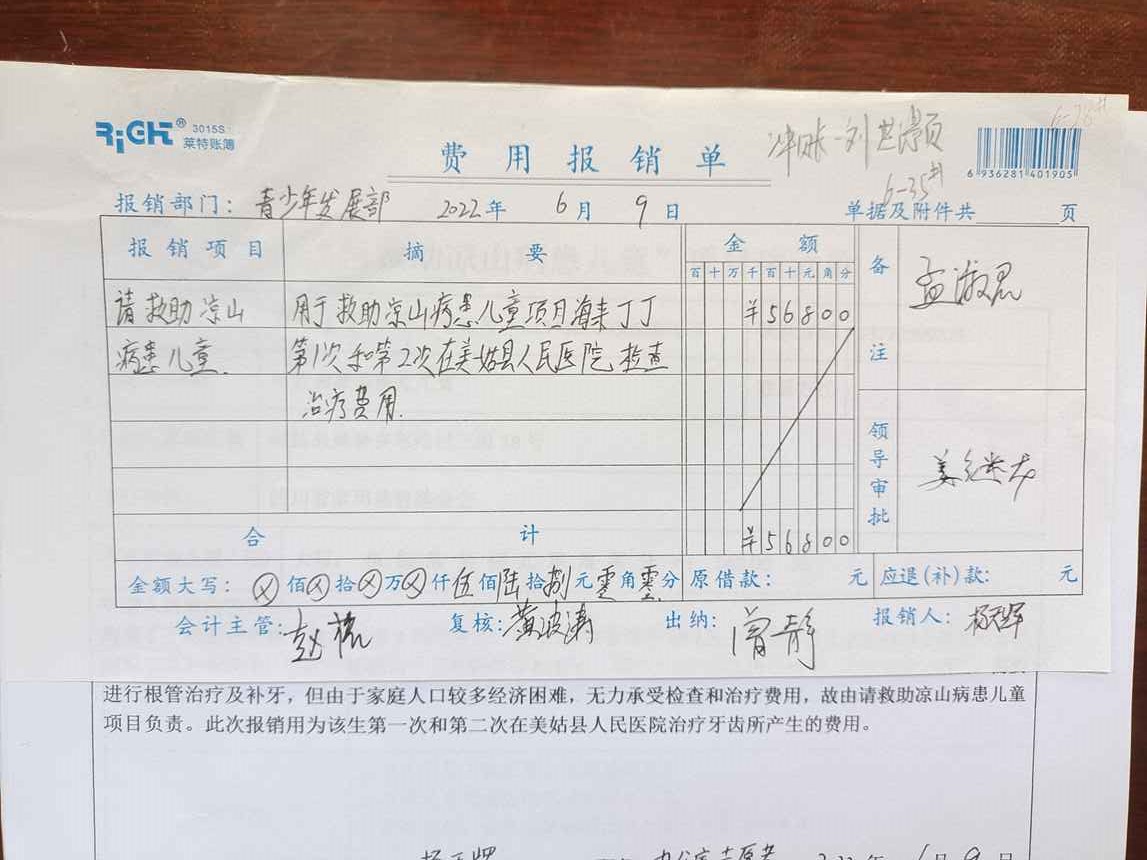 RiGHT® 3015S
莱特账簿
费用报销单
冲账-刘
6-35#
6-28#
6 936281 401905
报销部门: 青少年发展部 2022年 6月 9日 单据及附件共 页
报销项目 摘要 金额 备注
百十万千百十元角分
请救助凉山 用于救助凉山病患儿童项目海来丁丁 ¥56800 孟淑君
病患儿童. 第1次和第2次在美姑县人民医院检查
治疗费用.
领导审批 姜
合计 ¥56800
金额大写: ⊗佰⊗拾⊗万⊗仟伍佰陆拾捌元零角零分 原借款: 元 应退(补)款: 元
会计主管: 赵 复核: 黄波涛 出纳: 曾静 报销人: 杨
进行根管治疗及补牙，但由于家庭人口较多经济困难，无力承受检查和治疗费用，故由请救助凉山病患儿童
项目负责。此次报销用为该生第一次和第二次在美姑县人民医院治疗牙齿所产生的费用。